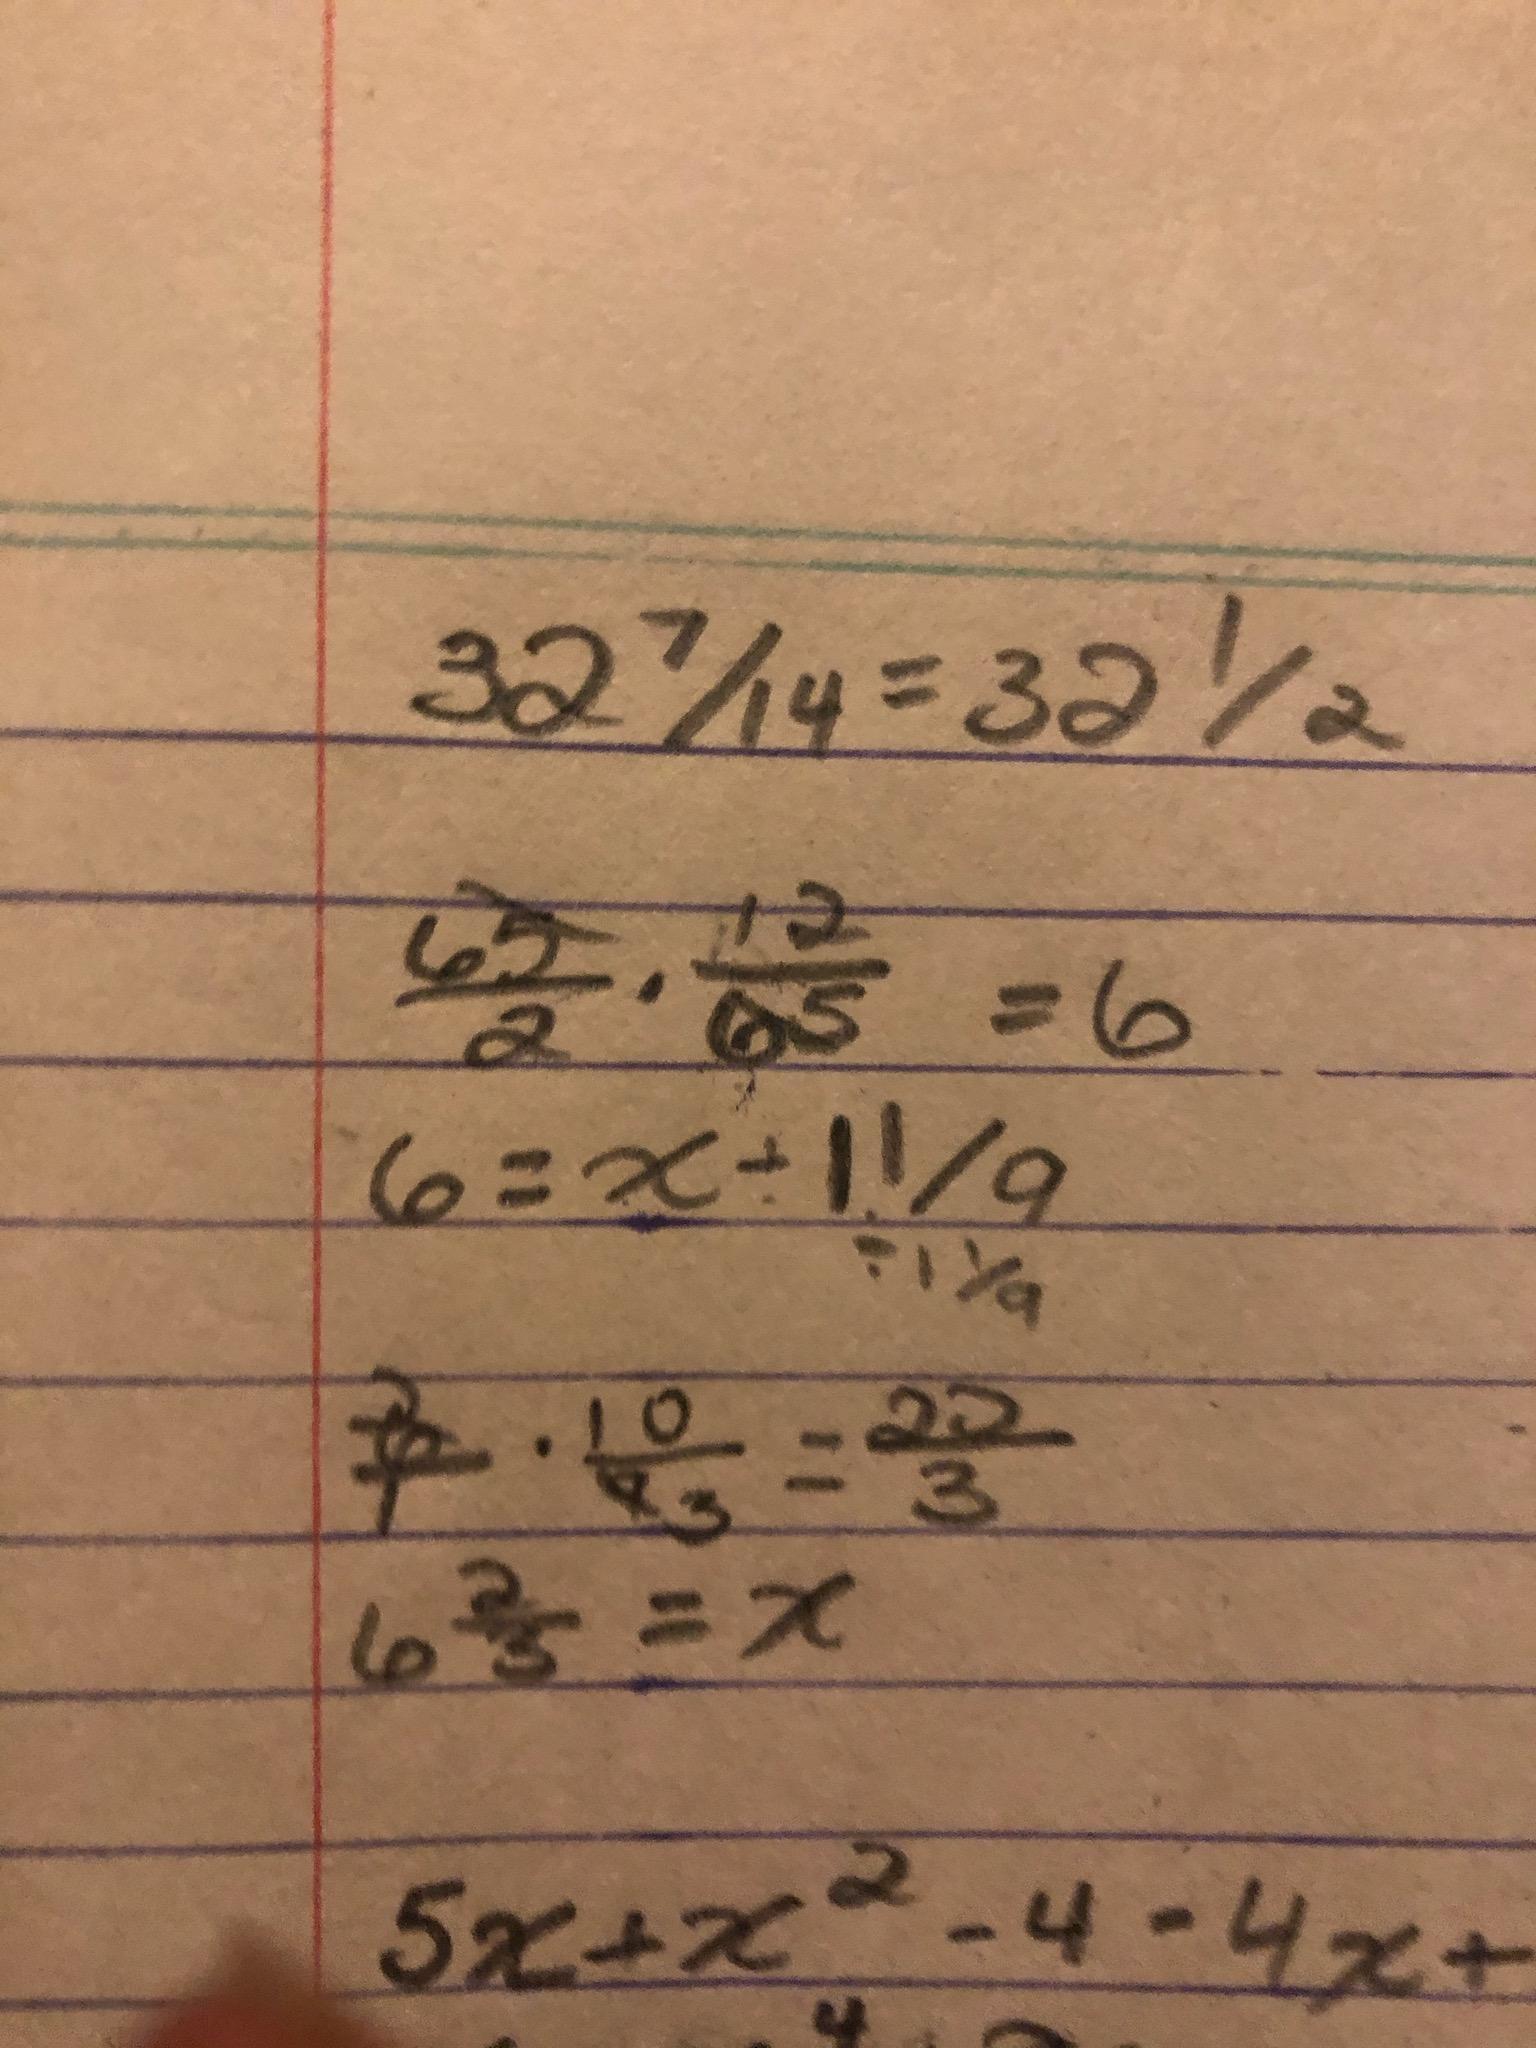 32 7/14 = 32 1/2
65/2 · 12/65 = 6
6 = x ÷ 1 1/9
÷ 1 1/9
2 6/1 · 10/9 3 = 22/3
6 2/3 = x
5x + x² - 4 - 4x +